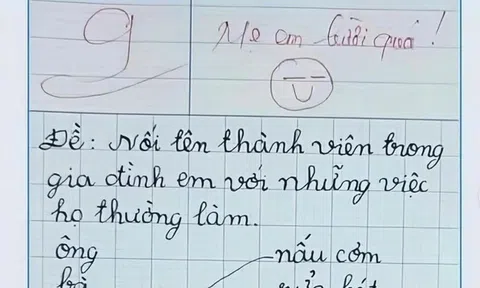 9
Mẹ em Giỏi quá!
Đề: Nối tên thành viên trong
gia đình em với những việc
họ thường làm.
ông
nấu cơm
bà
rửa bát